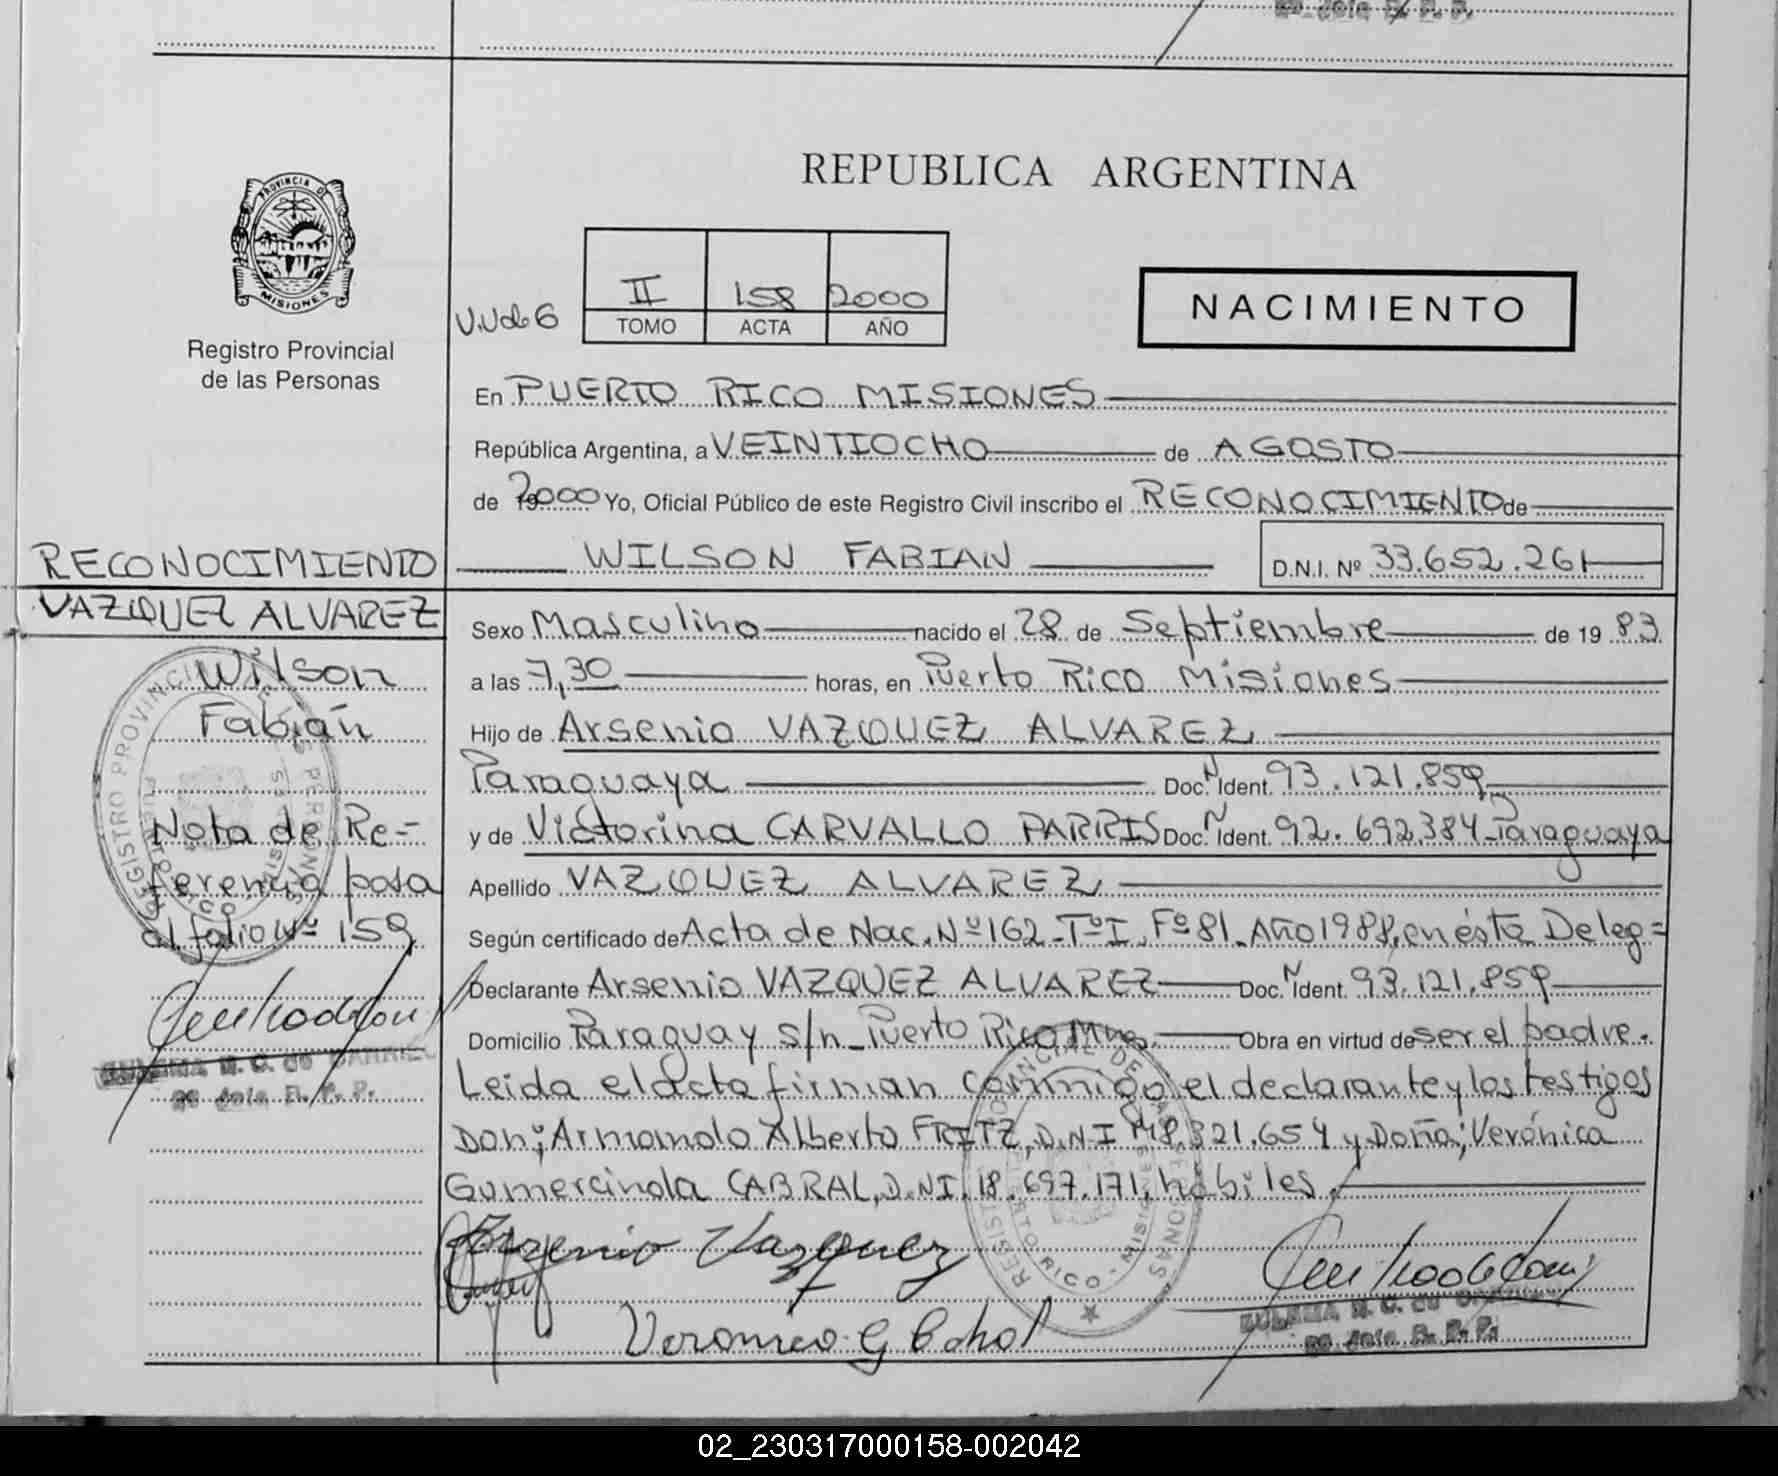 REPUBLICA ARGENTINA
PROVINCIA DE
MISIONES
Registro Provincial
de las Personas
II 158 2000
TOMO ACTA AÑO
NACIMIENTO
En PUERTO RICO MISIONES
República Argentina, a VEINTIOCHO de AGOSTO
de 2000 Yo, Oficial Público de este Registro Civil inscribo el RECONOCIMIENTO de
WILSON FABIAN D.N.I. Nº 33.652.261
RECONOCIMIENTO
VAZQUEZ ALVAREZ
Wilson
Fabián
Nota de Re=
ferencia pasa
al folio Nº 159
Sexo Masculino nacido el 28 de Septiembre de 19 83
a las 7,30 horas, en Puerto Rico Misiones
Hijo de Arsenio VAZQUEZ ALVAREZ
Paraguaya Doc. N Ident. 93.121.859
y de Victorina CARVALLO PARRIS Doc. N Ident. 92.692.384 - Paraguaya
Apellido VAZQUEZ ALVAREZ
Según certificado de Acta de Nac. Nº 162 - Tº I, Fº 81 - Año 1988, en ésta Deleg=
Declarante Arsenio VAZQUEZ ALVAREZ Doc. N Ident. 93.121.859
Domicilio Paraguay s/n - Puerto Rico Mnes. Obra en virtud de ser el padre.
Leida el acta firman conmigo el declarante y los testigos
Don; Armando Alberto FRITZ, D.N.I M8.321.654 y Doña; Verónica
Gumercinda CABRAL, D.NI. 18.697.171, hábiles.
Arzenio Vazquez
REGISTRO PROVINCIAL DE LAS PERSONAS
PUERTO RICO - MISIONES
02_230317000158-002042